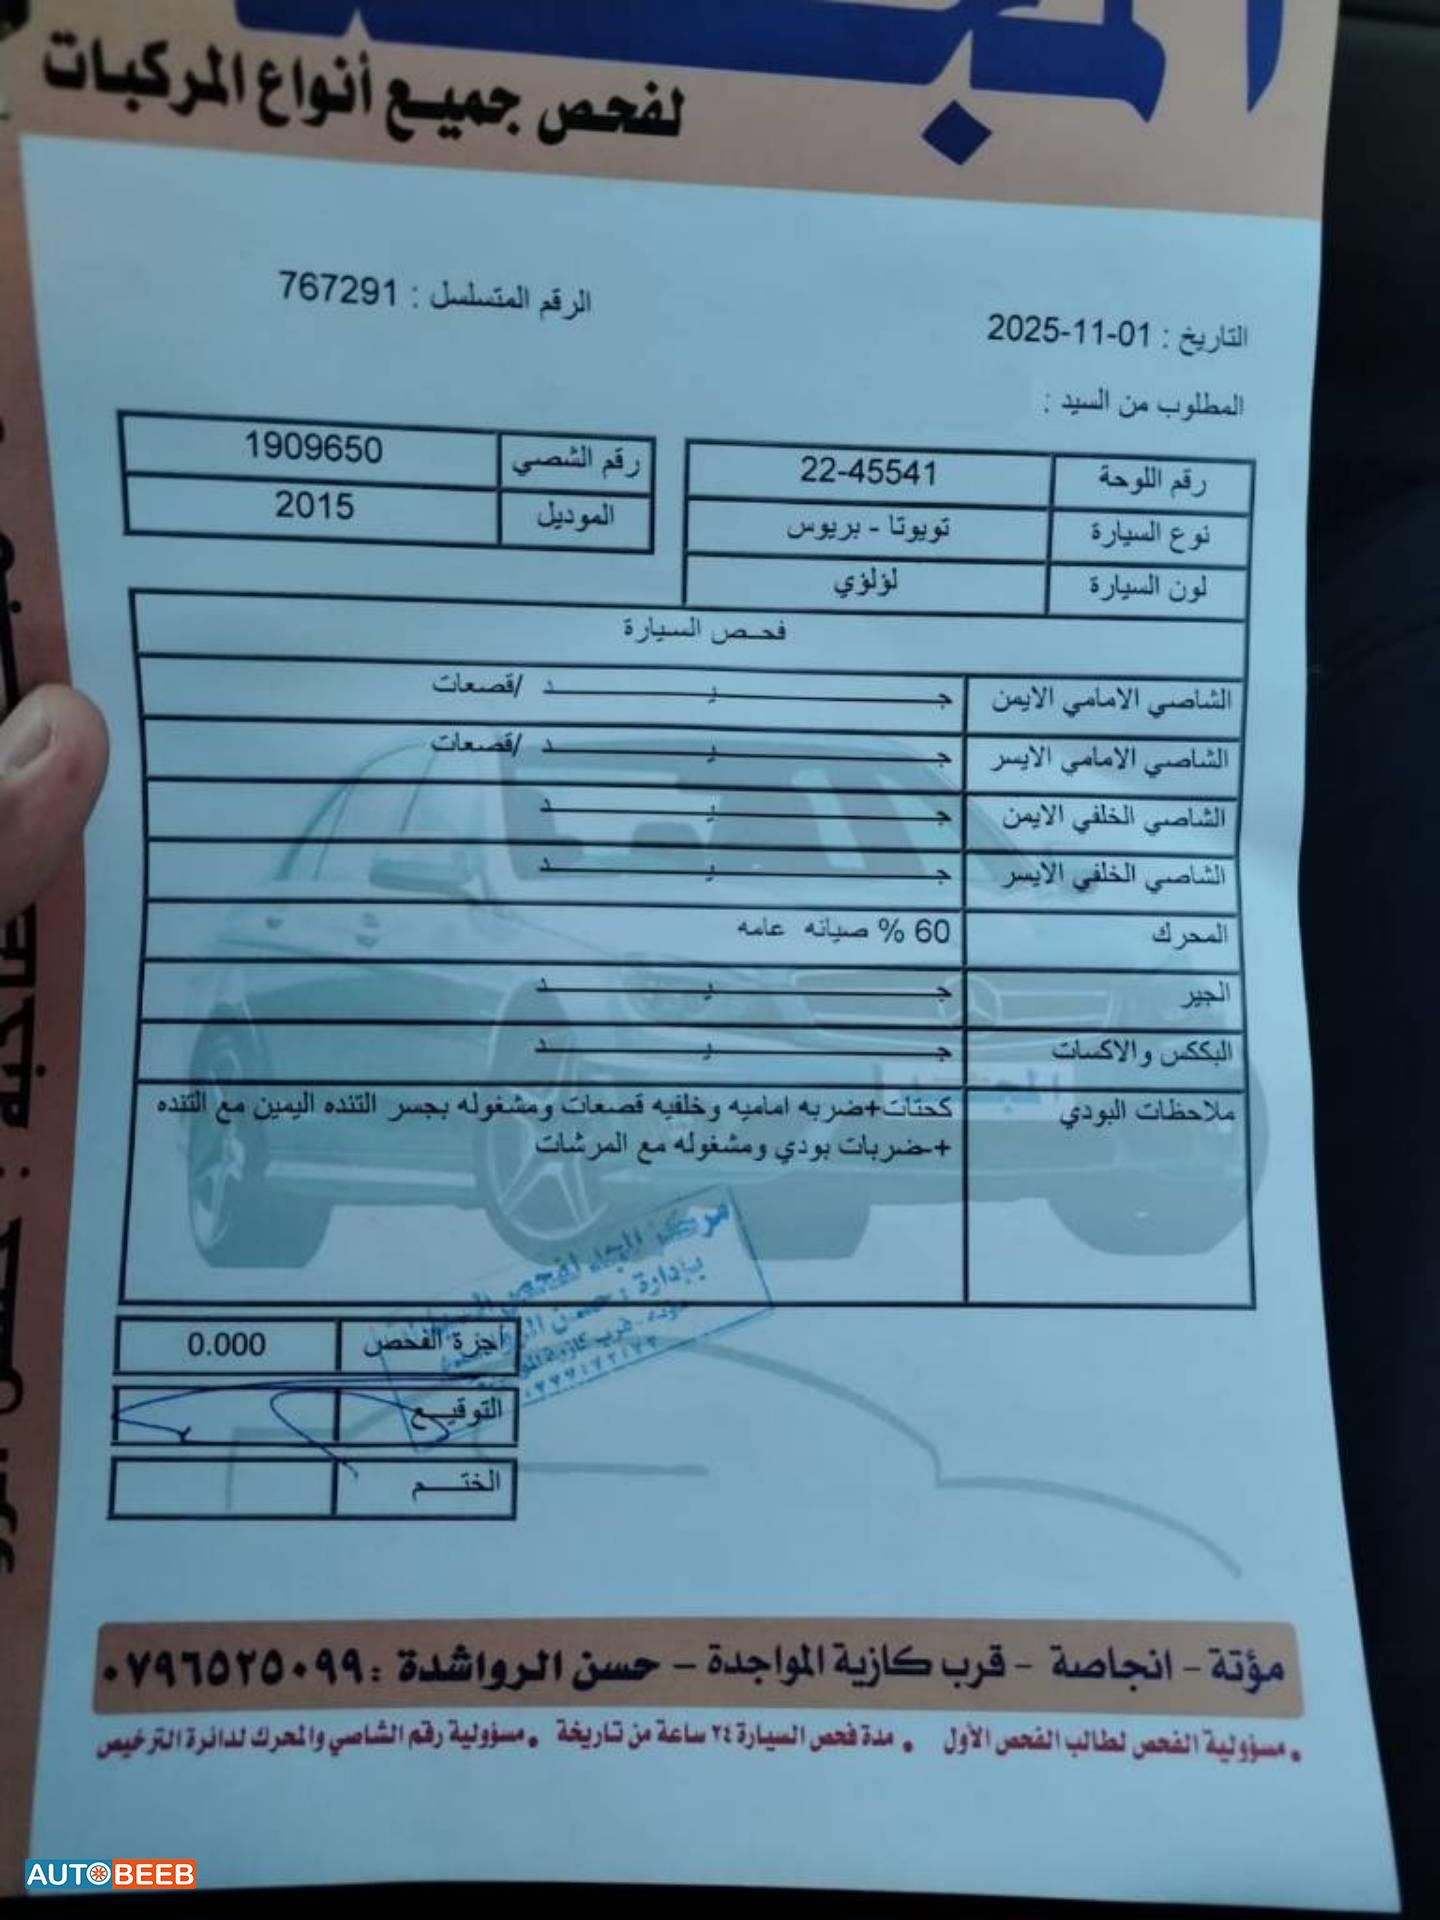 لفحص جميع أنواع المركبات
التاريخ : 01-11-2025
الرقم المتسلسل : 767291
المطلوب من السيد :
رقم اللوحة 22-45541
رقم الشصي 1909650
نوع السيارة تويوتا - بريوس
الموديل 2015
لون السيارة لؤلؤي
فحص السيارة
الشاصي الامامي الايمن جيد /قصعات
الشاصي الامامي الايسر جيد /قصعات
الشاصي الخلفي الايمن جيد
الشاصي الخلفي الايسر جيد
المحرك 60 % صيانه عامه
الجير جيد
البككس والاكسات جيد
ملاحظات البودي كحتات+ضربه اماميه وخلفيه قصعات ومشغوله بجسر التنده اليمين مع التنده
+ضربات بودي ومشغوله مع المرشات
أجرة الفحص 0.000
التوقيع
الختم
مؤتة - انجاصة - قرب كازية المواجدة - حسن الرواشدة : ٠٧٩٦٥٢٥٠٩٩
• مسؤولية الفحص لطالب الفحص الأول • مدة فحص السيارة ٢٤ ساعة من تاريخة • مسؤولية رقم الشاصي والمحرك لدائرة الترخيص
AUTOBEEB